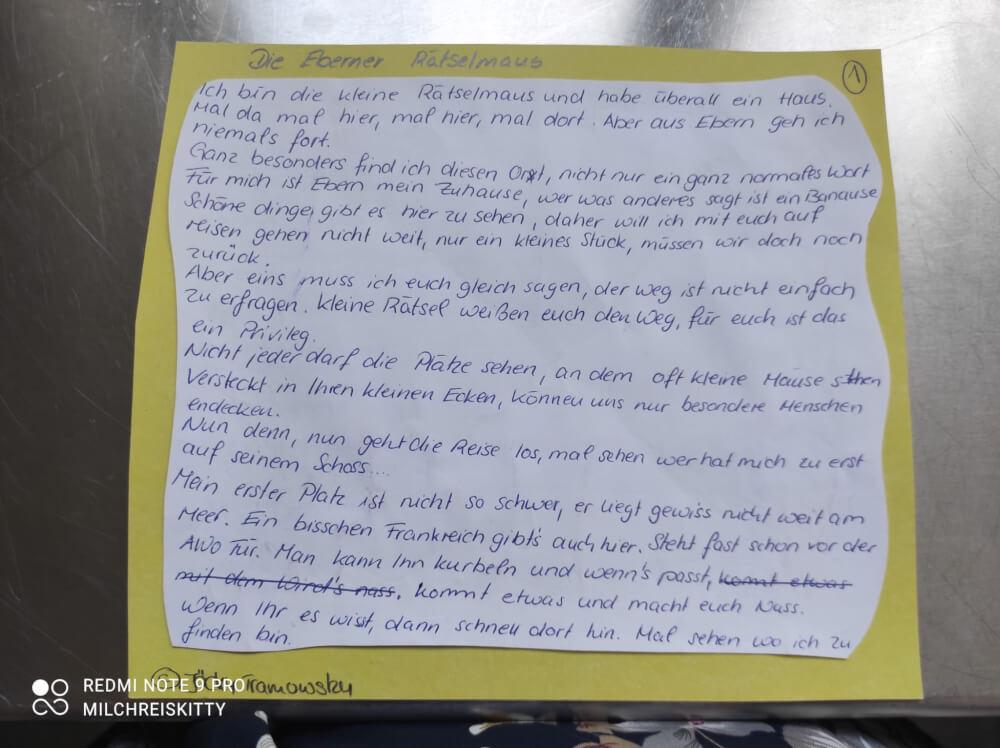 Die Eberner Rätselmaus
1
Ich bin die kleine Rätselmaus und habe überall ein Haus.
Mal da mal hier, mal hier, mal dort. Aber aus Ebern geh ich
niemals fort.
Ganz besonders find ich diesen Ort, nicht nur ein ganz normales Wort
Für mich ist Ebern mein Zuhause, wer was anderes sagt ist ein Banause
Schöne dinge, gibt es hier zu sehen, daher will ich mit euch auf
reisen gehen nicht weit, nur ein kleines Stück, müssen wir doch noch
zurück.
Aber eins muss ich euch gleich sagen, der weg ist nicht einfach
zu erfragen. kleine Rätsel weißen euch den Weg, für euch ist das
ein Privileg.
Nicht jeder darf die Plätze sehen, an dem oft kleine Mäuse stehen
Versteckt in Ihren kleinen Ecken, können uns nur besondere Menschen
endecken.
Nun denn, nun geht die Reise los, mal sehen wer hat mich zu erst
auf seinem Schoss....
Mein erster Platz ist nicht so schwer, er liegt gewiss nicht weit am
Meer. Ein bisschen Frankreich gibt's auch hier. Steht fast schon vor der
AWO Tür. Man kann Ihn kurbeln und wenn's passt, kommt etwas
mit dem Wird's nass. kommt etwas und macht euch Nass.
Wenn Ihr es wisst, dann schnell dort hin. Mal sehen wo ich zu
finden bin.
Tramowsky
REDMI NOTE 9 PRO
MILCHREISKITTY